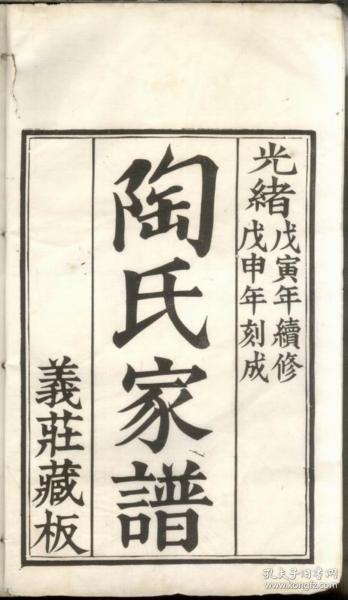 光緒
戊寅年續修
戊申年刻成
陶氏家譜
義莊藏板
孔夫子旧书网